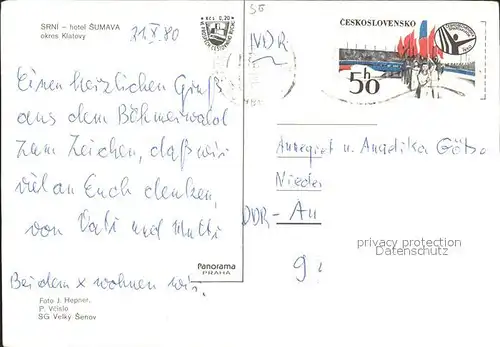 SRNÍ – hotel ŠUMAVA
okres Klatovy
31.X.80
KČS 0,20
ČESKOSLOVENSKO
50h
NDR
Einen herzlichen Gruß
aus dem Böhmerwald
zum Zeichen, daß wir
viel an Euch denken,
von Vati und Mutti
Bei dem x wohnen wir.
Annegret u. Angelika Götze
Nieder
DDR - Au
9
privacy protection
Datenschutz
Panorama
PRAHA
Foto J. Hepner,
P. Včislo
SG Velký Šenov